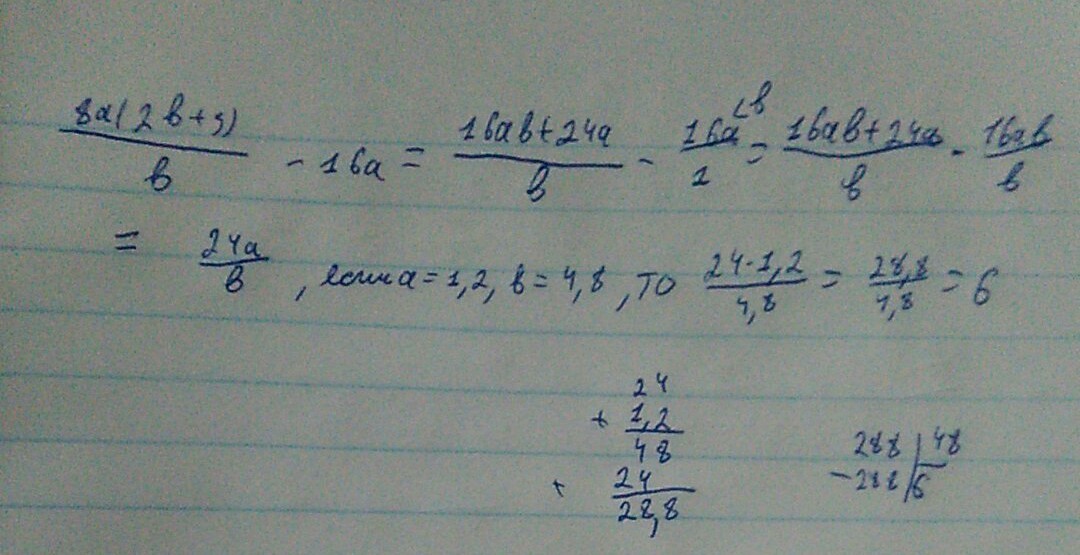 8a(2b+3)/b - 16a = 16ab+24a/b - 16a/1 <b = 16ab+24a/b - 16ab/b
= 24a/b , если a = 1,2, b = 4,8, то 24·1,2/4,8 = 28,8/4,8 = 6
24
× 1,2
48
+ 24
28,8
288 | 48
-288 | 6